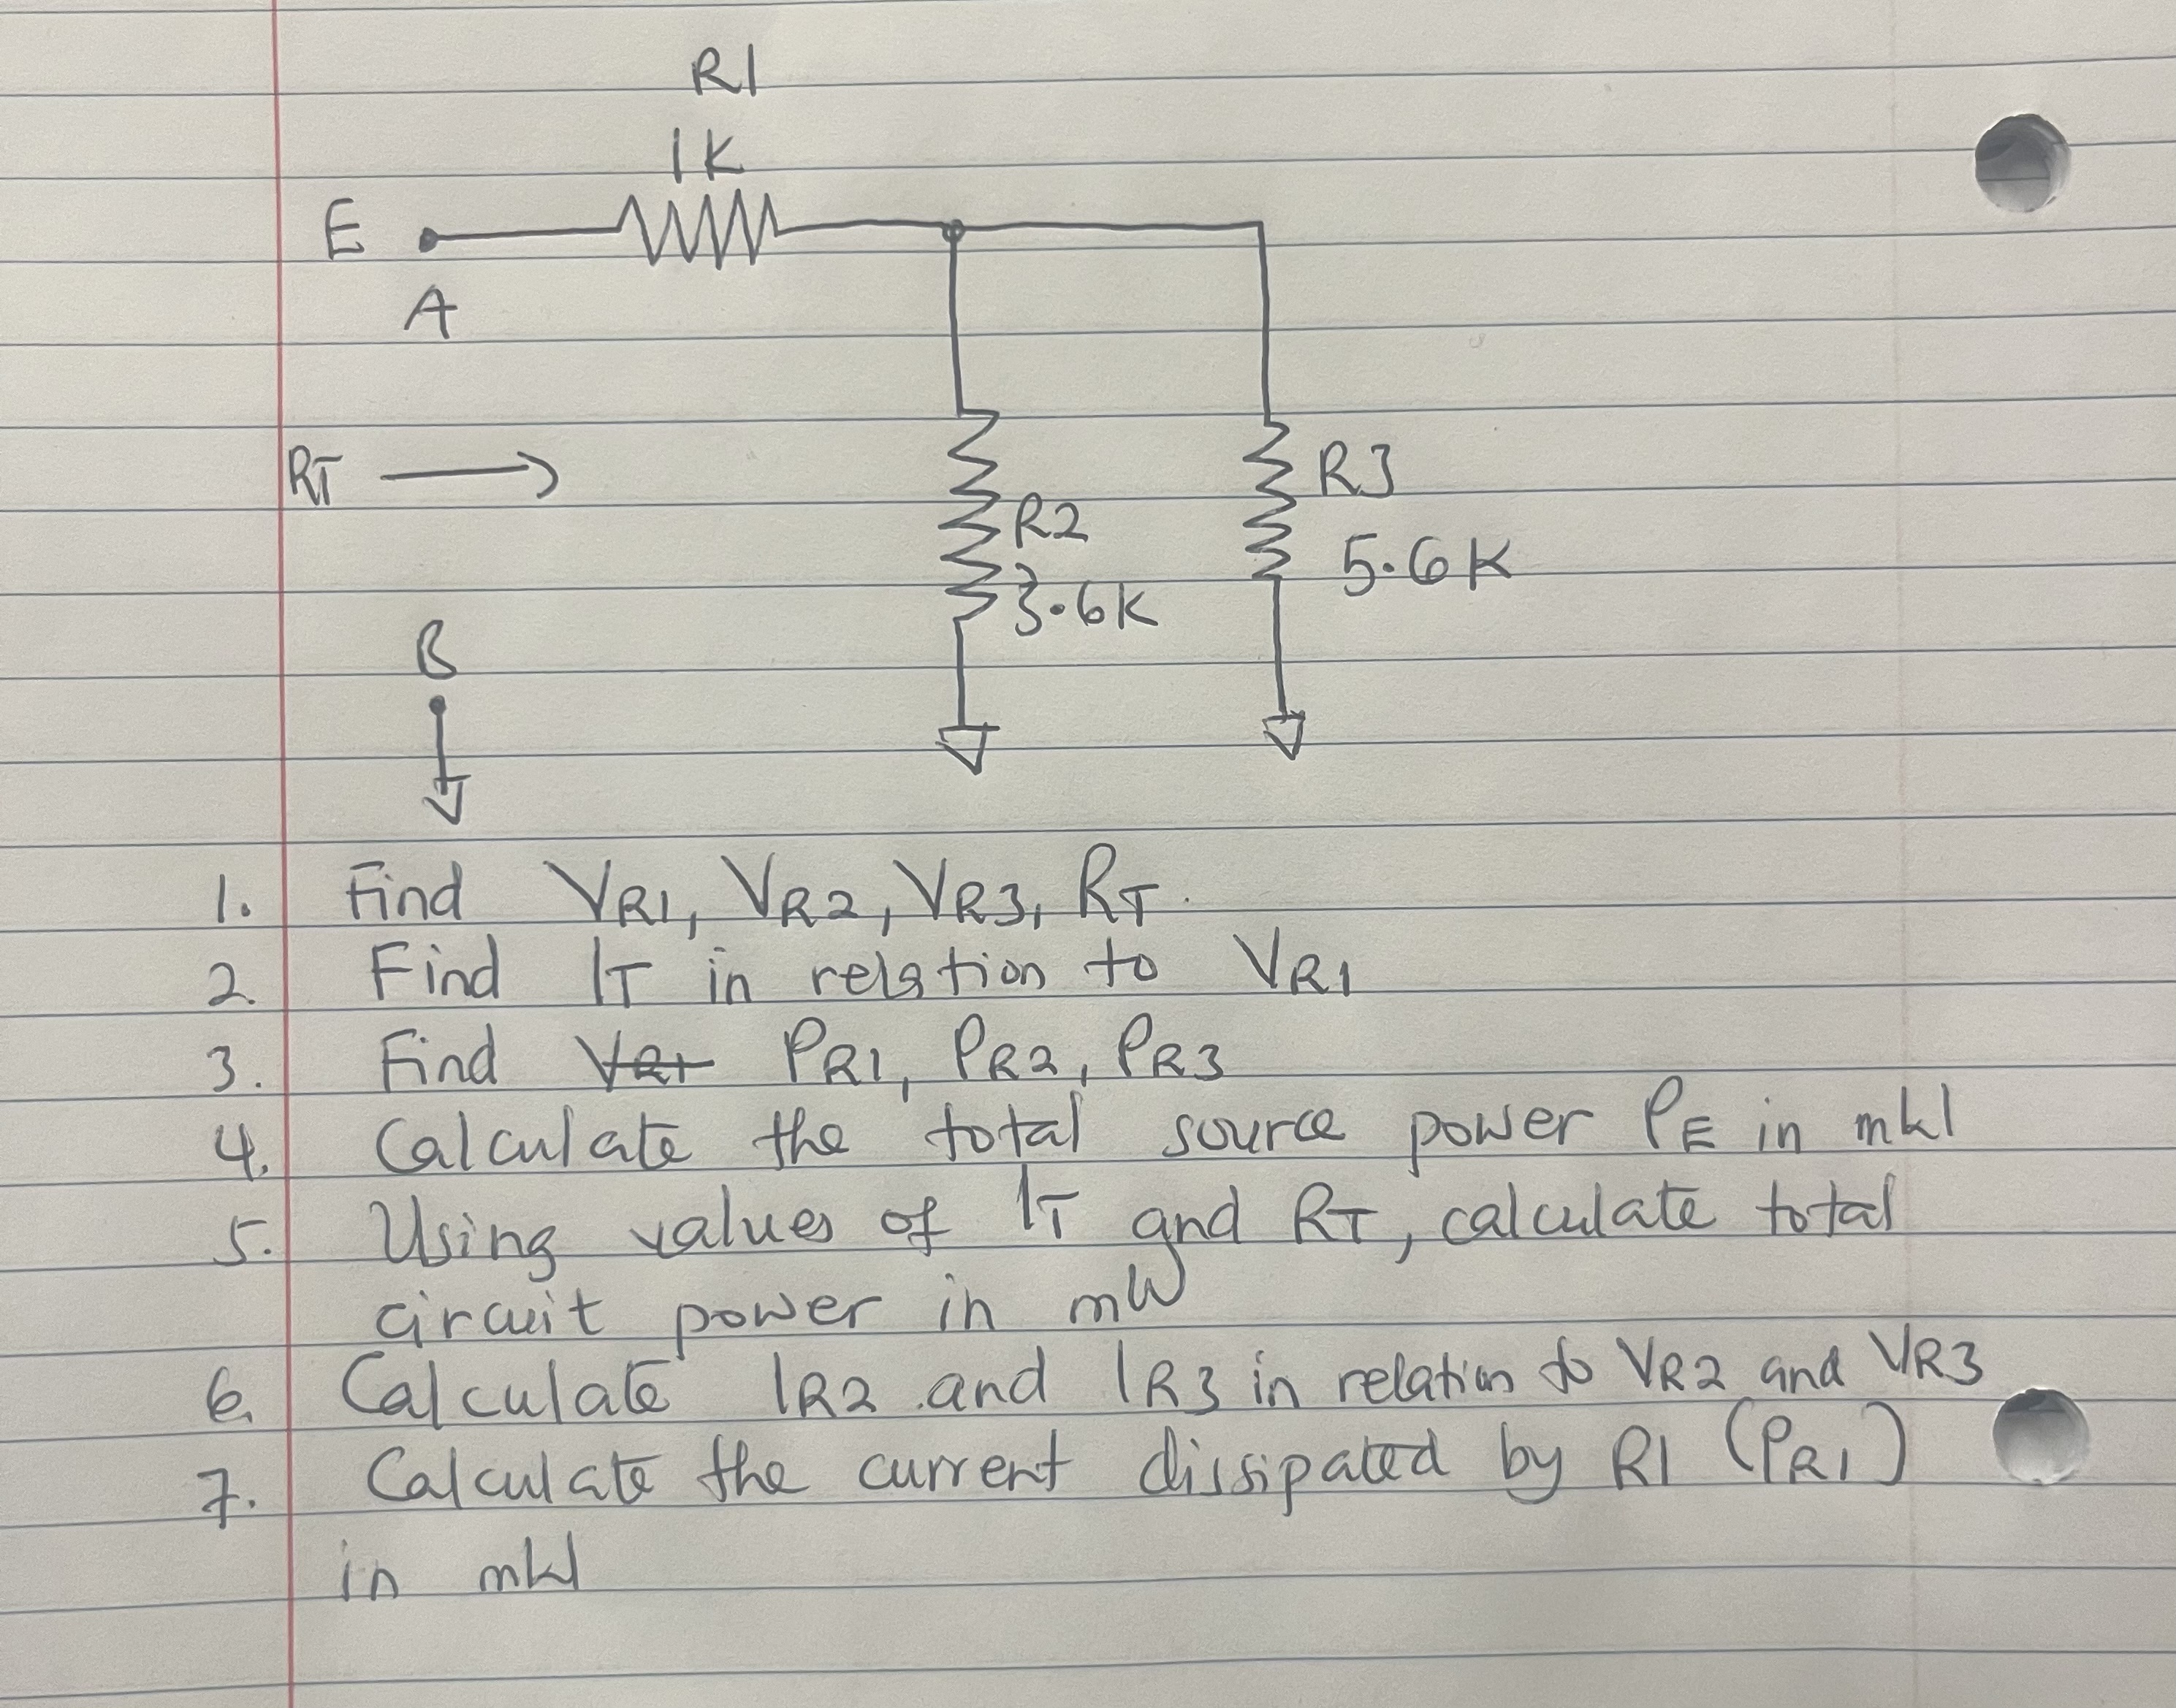 R1
1K
E
A
RT
R2
3.6K
R3
5.6K
B
1. Find VR1, VR2, VR3, RT.
2. Find IT in relation to VR1
3. Find VR1 PR1, PR2, PR3
4. Calculate the total source power PE in mW
5. Using values of IT and RT, calculate total
circuit power in mW
6. Calculate IR2 and IR3 in relation to VR2 and VR3
7. Calculate the current dissipated by R1 (PR1)
in mW